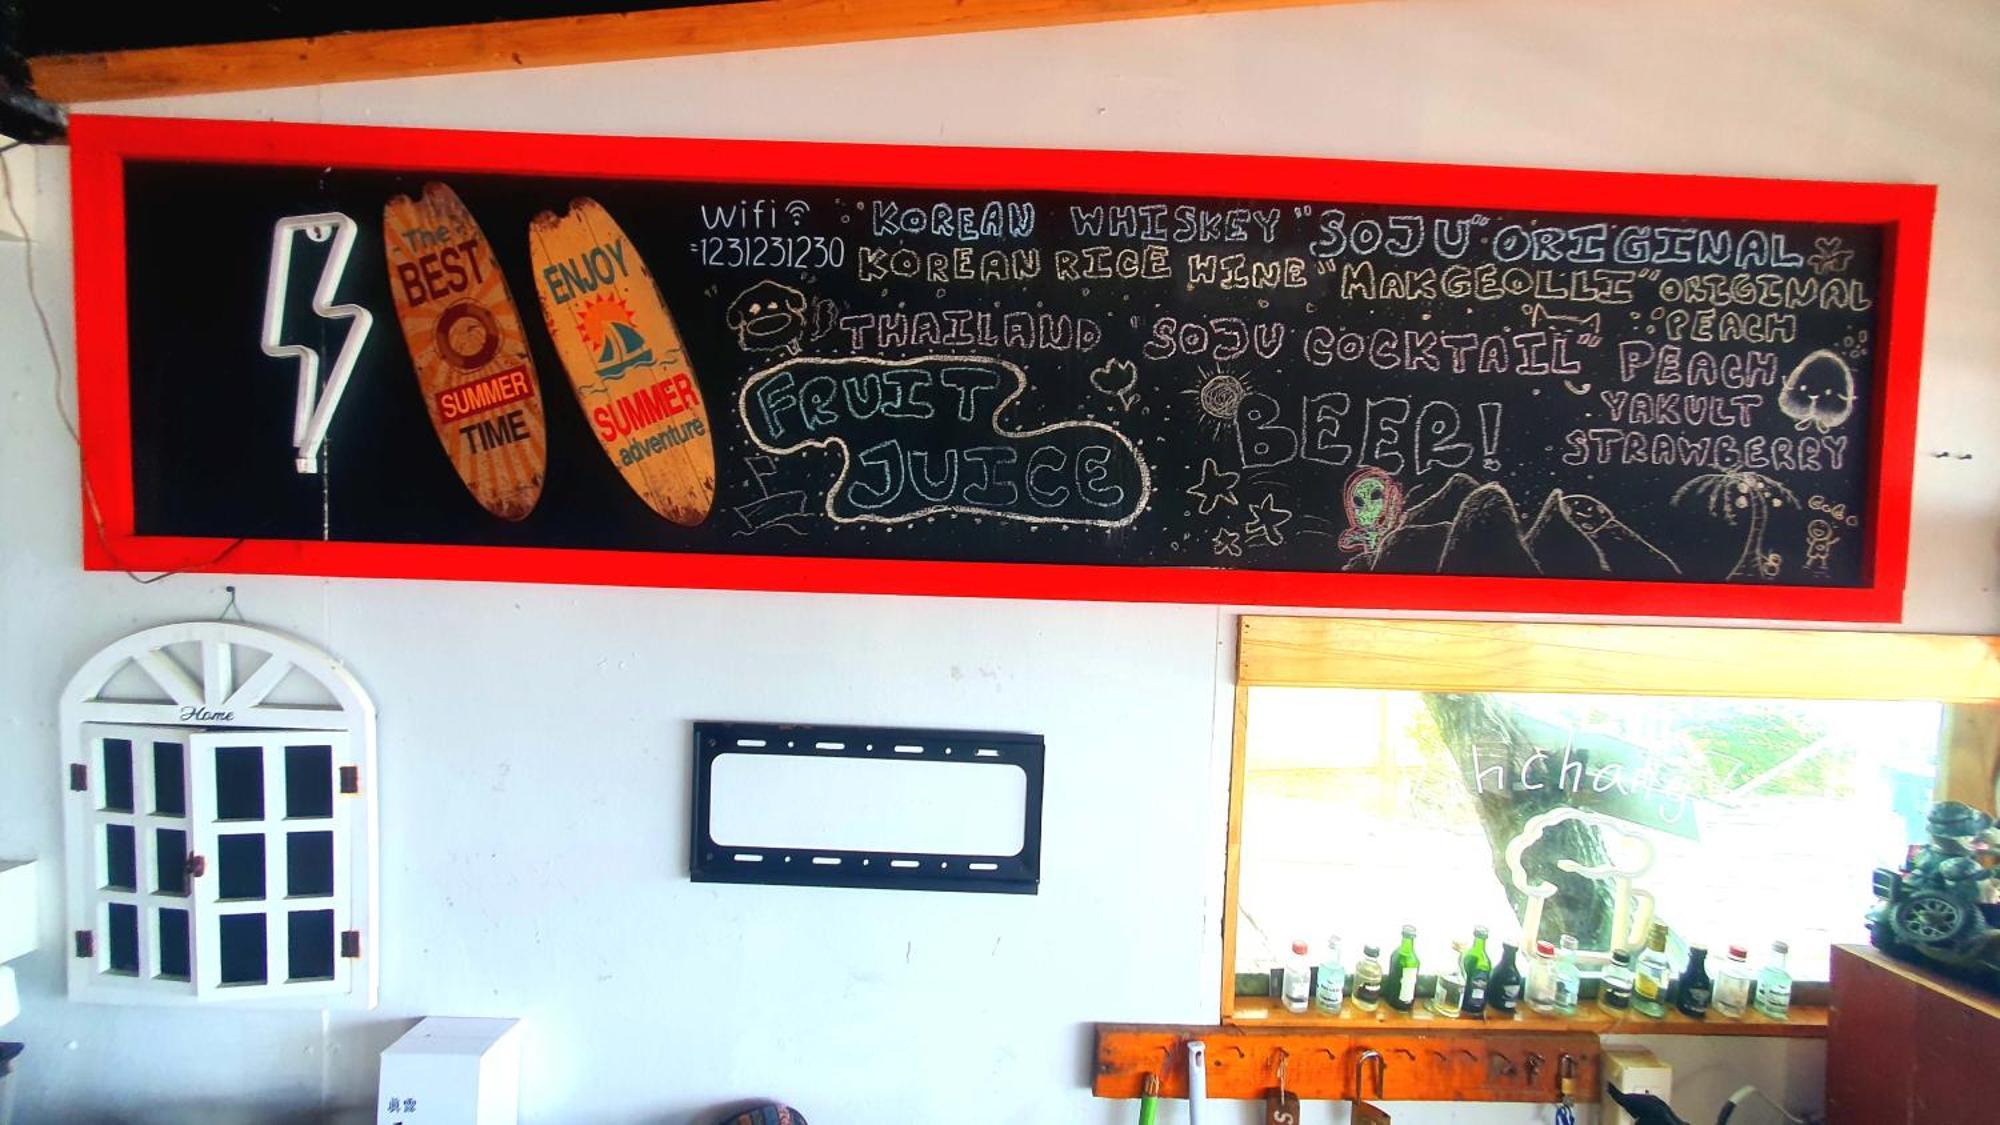 The
BEST
SUMMER
TIME
ENJOY
SUMMER
adventure
Wifi
=1231231230
KOREAN WHISKEY "SOJU" ORIGINAL
KOREAN RICE WINE "MAKGEOLLI" ORIGINAL
PEACH
THAILAND "SOJU COCKTAIL" PEACH
YAKULT
STRAWBERRY
FRUIT
JUICE
BEER!
COCO
Home
hchang